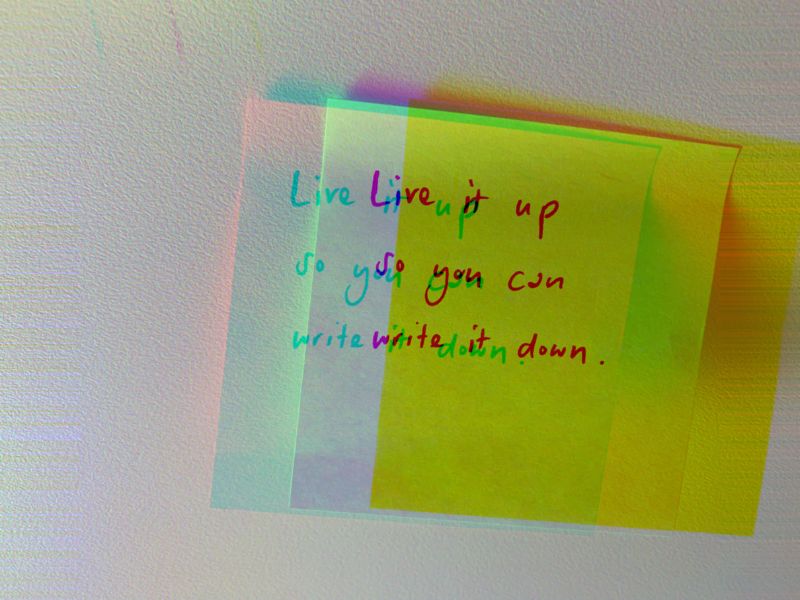 Live it up
so you can
write it down.